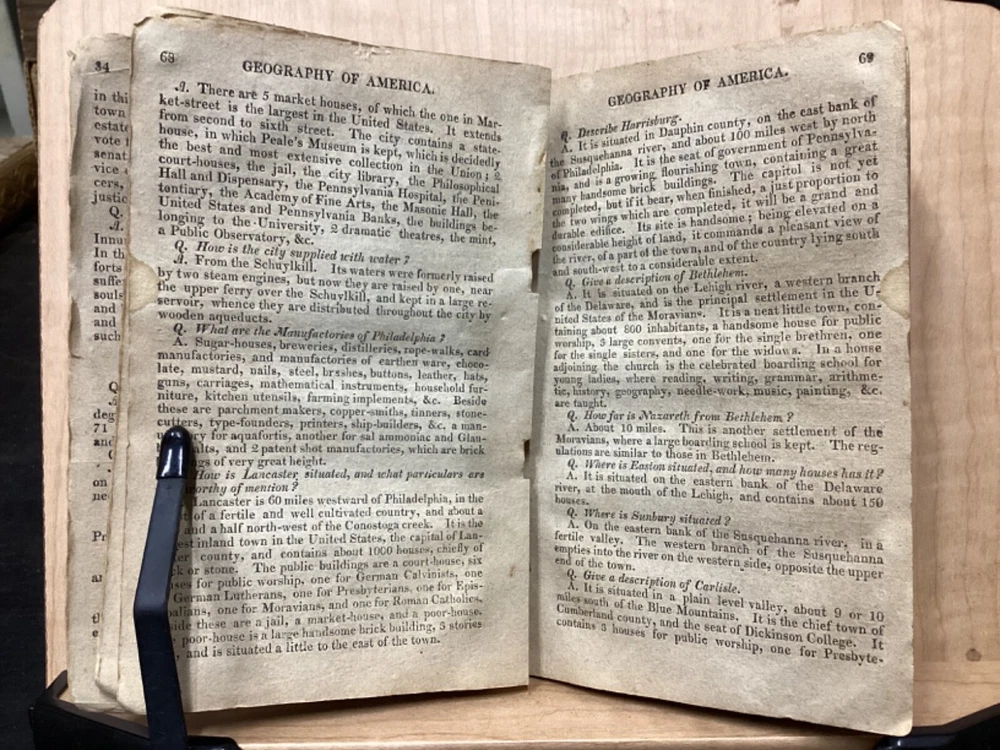 34
in thi
town
estate
vote
senat
vice
cers,
justic
Q.
A.
Innu
In th
forts
suffe
souls
and
and
such
Q
A
deg
71
and
on
ne
Pr
68
GEOGRAPHY OF AMERICA.
A. There are 5 market houses, of which the one in Mar-
ket-street is the largest in the United States. It extends
from second to sixth street. The city contains a state-
house, in which Peale's Museum is kept, which is decidedly
the best and most extensive collection in the Union; 2
court-houses, the jail, the city library, the Philosophical
Hall and Dispensary, the Pennsylvania Hospital, the Peni-
tontiary, the Academy of Fine Arts, the Masonic Hall, the
United States and Pennsylvania Banks, the buildings be-
longing to the University, 2 dramatic theatres, the mint,
a Public Observatory, &c.
Q. How is the city supplied with water?
A. From the Schuylkill. Its waters were formerly raised
by two steam engines, but now they are raised by one, near
the upper ferry over the Schuylkill, and kept in a large re-
servoir, whence they are distributed throughout the city by
wooden aqueducts.
Q. What are the Manufactories of Philadelphia?
A. Sugar-houses, breweries, distilleries, rope-walks, card
manufactories, and manufactories of earthen ware, choco-
late, mustard, nails, steel, brushes, buttons, leather, hats,
guns, carriages, mathematical instruments, household fur-
niture, kitchen utensils, farming implements, &c. Beside
these are parchment makers, copper-smiths, tinners, stone-
cutters, type-founders, printers, ship-builders, &c. a man-
ry for aquafortis, another for sal ammoniac and Glau-
alts, and 2 patent shot manufactories, which are brick
ngs of very great height.
How is Lancaster situated, and what particulars are
worthy of mention?
Lancaster is 60 miles westward of Philadelphia, in the
of a fertile and well cultivated country, and about a
and a half north-west of the Conostoga creek. It is the
est inland town in the United States, the capital of Lan-
er county, and contains about 1000 houses, chiefly of
ck or stone. The public buildings are a court-house, six
uses for public worship, one for German Calvinists, one
German Lutherans, one for Presbyterians, one for Epis-
palians, one for Moravians, and one for Roman Catholics.
side these are a jail, a market-house, and a poor-house.
poor-house is a large handsome brick building, 3 stories
, and is situated a little to the east of the town.
69
GEOGRAPHY OF AMERICA.
Q. Describe Harrisburg.
A. It is situated in Dauphin county, on the east bank of
the Susquehanna river, and about 100 miles west by north
of Philadelphia. It is the seat of government of Pennsylva-
nia, and is a growing, flourishing town, containing a great
many handsome brick buildings. The capitol is not yet
completed, but if it bear, when finished, a just proportion to
the two wings which are completed, it will be a grand and
durable edifice. Its site is handsome; being elevated on a
considerable height of land, it commands a pleasant view of
the river, of a part of the town, and of the country lying south
and south-west to a considerable extent.
Q. Give a description of Bethlehem.
A. It is situated on the Lehigh river, a western branch
of the Delaware, and is the principal settlement in the U-
nited States of the Moravians. It is a neat little town, con-
taining about 800 inhabitants, a handsome house for public
worship, 3 large convents, one for the single brethren, one
for the single sisters, and one for the widows. In a house
adjoining the church is the celebrated boarding school for
young ladies, where reading, writing, grammar, arithme-
tic, history, geography, needle-work, music, painting, &c.
are taught.
Q. How far is Nazareth from Bethlehem?
A. About 10 miles. This is another settlement of the
Moravians, where a large boarding school is kept. The reg-
ulations are similar to those in Bethlehem.
Q. Where is Easton situated, and how many houses has it?
A. It is situated on the eastern bank of the Delaware
river, at the mouth of the Lehigh, and contains about 150
houses.
Q. Where is Sunbury situated?
A. On the eastern bank of the Susquehanna river, in a
fertile valley. The western branch of the Susquehanna
empties into the river on the western side, opposite the upper
end of the town.
Q. Give a description of Carlisle.
A. It is situated in a plain level valley, about 9 or 10
miles south of the Blue Mountains. It is the chief town of
Cumberland county, and the seat of Dickinson College. It
contains 3 houses for public worship, one for Presbyte-